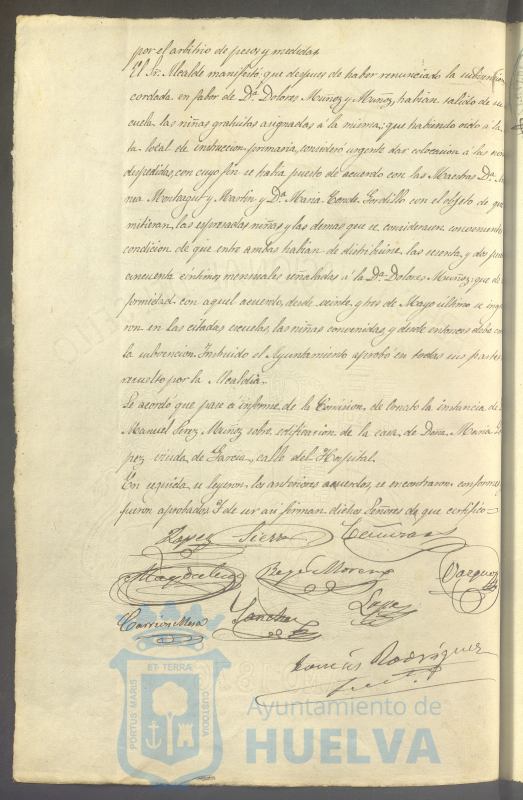 por el arbitrio de pesos y medidas
El Sr. Alcalde manifestó: que despues de haber renunciado la subvencion
cordada en fabor de Dª. Dolores Muñoz y Muñoz, habian salido de su
cuela las niñas gratuitas asignadas á la misma; que habiendo oido á la
ta local de instruccion primaria, consideró urgente dar colocacion á las
despedidas, con cuyo fin se habia puesto de acuerdo con las Maestras Dª.
nea y Martin y Dª. Maria Conde Gordillo con el objeto de que
mitieran las espresadas niñas y las demas que se considerasen conveniente
condicion de que entre ambas habian de distribuirse las sesenta y dos
cincuenta céntimos mensuales señalados á la Dª. Dolores Muñoz: que de
formidad con aquel acuerdo, desde veinte y tres de Mayo último se
ron en las citadas escuelas las niñas convenidas, y desde entonces
la subvencion. Instruido el Ayuntamiento aprobó en todas sus partes
resuelto por la Alcaldia.
Se acordó que pase a informe de la Comision de Ornato la instancia de
Manuel Perez Muñoz sobre edificacion de la casa de Doña Maria
pez viuda de Garcia, calle del Hospital.
En seguida se leyeron los anteriores acuerdos, se encontraron conformes
fueron aprobados. Y de ser asi firman dichos Señores de que certifico =
Lopez Sierra
Magdalena Moreno Vazquez
Garrido Mora Sanchez Lope
Tomás Rodriguez
ET TERRA
PORTUS MARIS
CUSTODIA
Ayuntamiento de
HUELVA